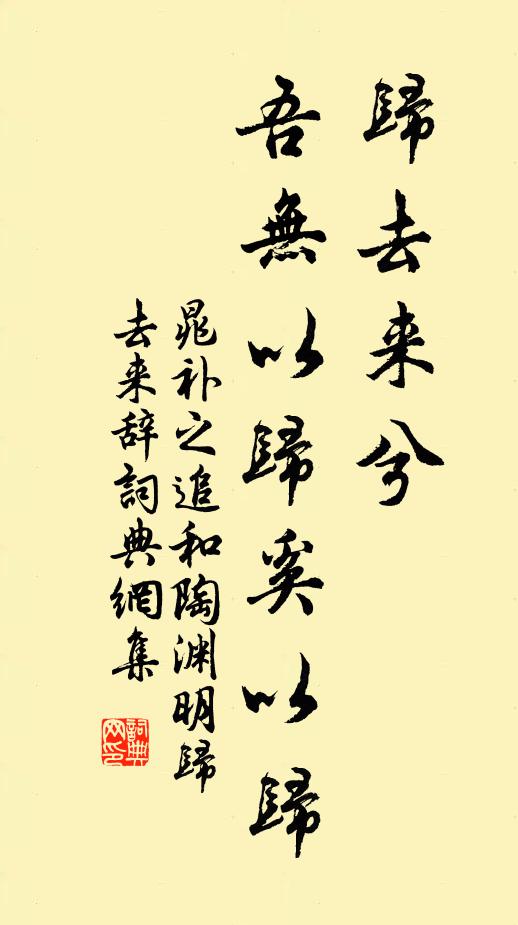 歸去来兮
吾無以歸奚以歸
晁补之追和陶渊明歸
去来辞詞典網集
詞典
网印